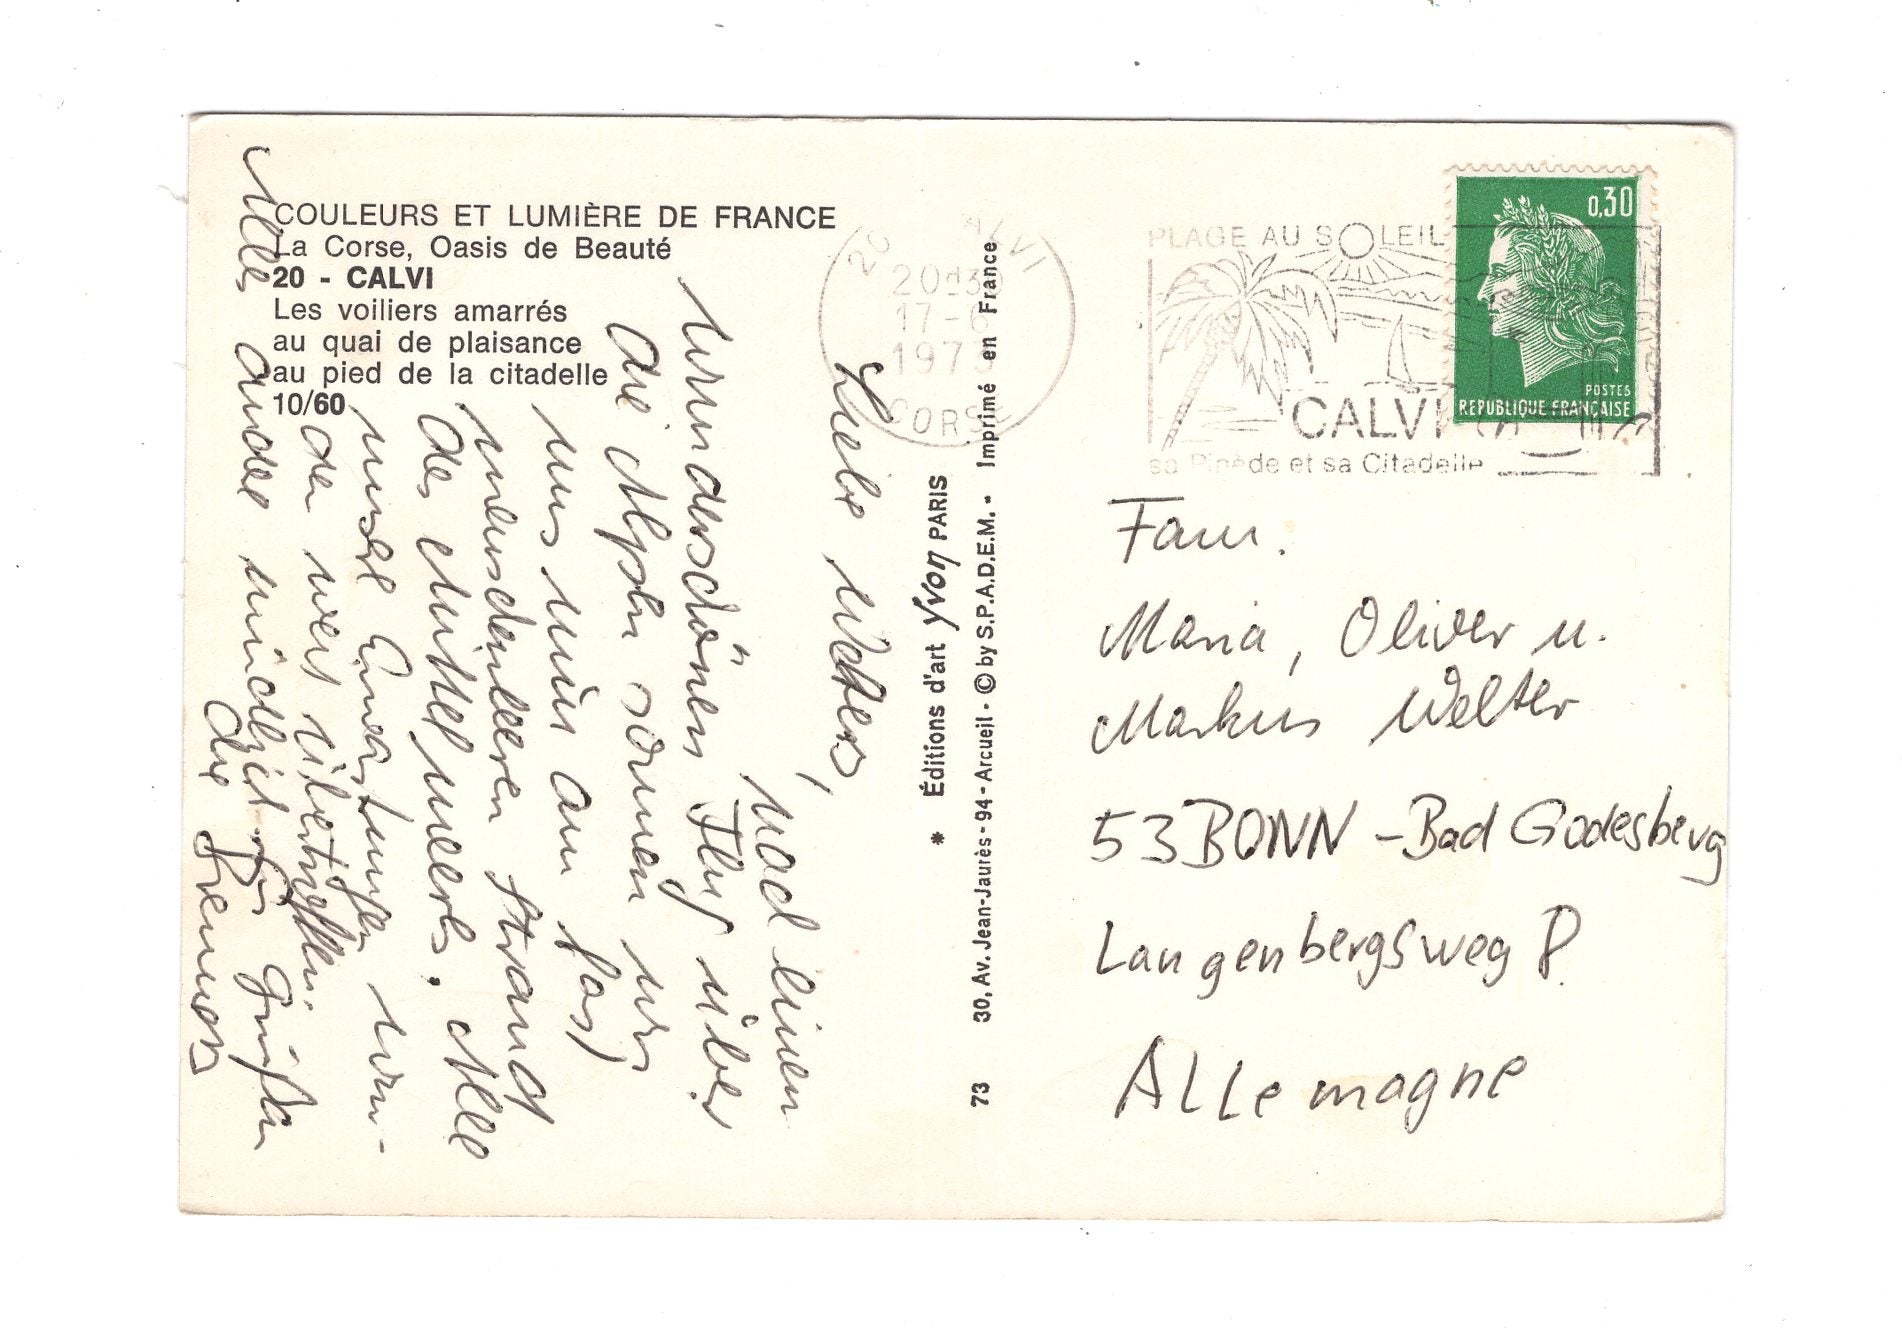 COULEURS ET LUMIÈRE DE FRANCE
La Corse, Oasis de Beauté
20 - CALVI
Les voiliers amarrés
au quai de plaisance
au pied de la citadelle
10/60
Liebe Welters,
Nach einem
wunderschönen Flug über
die Alpen sonnen wir
uns nun am fas)
menschenleeren Strand
des Mittelmeers. Alle
unsere Erwartungen wur-
den weit übertroffen.
Alles andere mündlich.
Die
* Éditions d'art Yvon PARIS
73 30, Av. Jean-Jaurès - 94 - Arcueil - © by S.P.A.D.E.M. - Imprimé en France
20 CALVI
17-6
CORSE
PLAGE AU SOLEIL
CALVI
sa Pinède et sa Citadelle
0,30
POSTES
REPUBLIQUE FRANÇAISE
Fam.
Maria, Oliver u.
Markus Welter
53 BONN - Bad Godesberg
Langenbergsweg 8
Allemagne